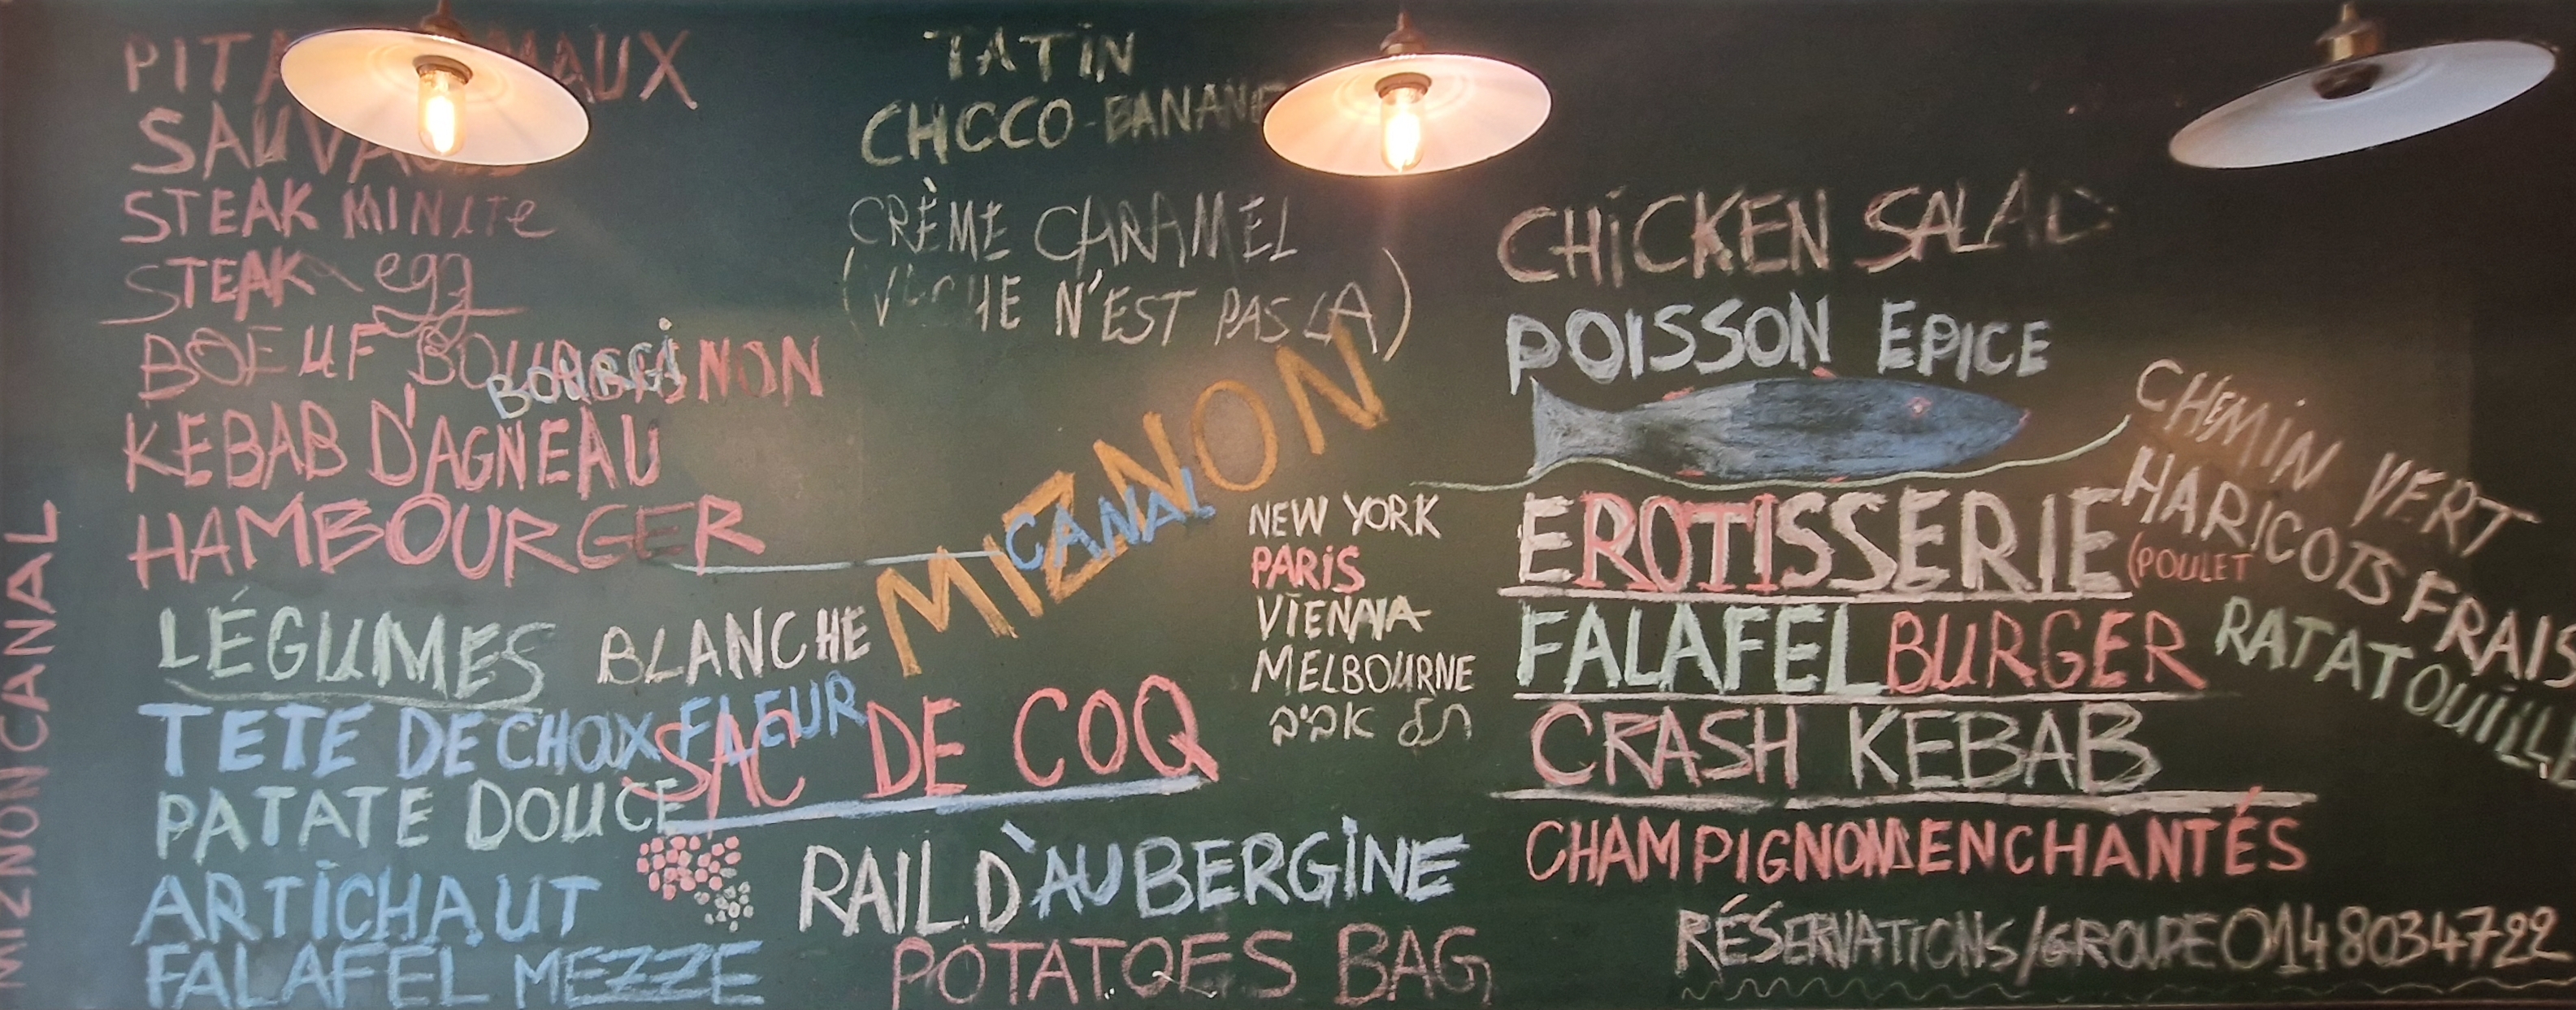 PITA
SAUVA
STEAK MINUTE
STEAK egg
BOEUF BOURGINON
BOURGI
KEBAB D'AGNEAU
HAMBOURGER
LÉGUMES
BLANCHE
TETE DE CHOUX FLEUR
PATATE DOUCE
ARTICHAUT
FALAFEL MEZZE
MIZNON CANAL
TATIN
CHOCO-BANANE
CRÈME CARAMEL
(VACHE N'EST PAS LA)
MIZNON
CANAL
NEW YORK
PARIS
VIENNA
MELBOURNE
תל אביב
SAC DE COQ
RAIL D'AUBERGINE
POTATOES BAG
CHICKEN SALAD
POISSON EPICE
EROTISSERIE
(POULET
FALAFEL BURGER
CRASH KEBAB
CHAMPIGNONS ENCHANTÉS
CHEMIN VERT
HARICOTS FRAIS
RATATOUILLE
RÉSERVATIONS/GROUPE 0148034722